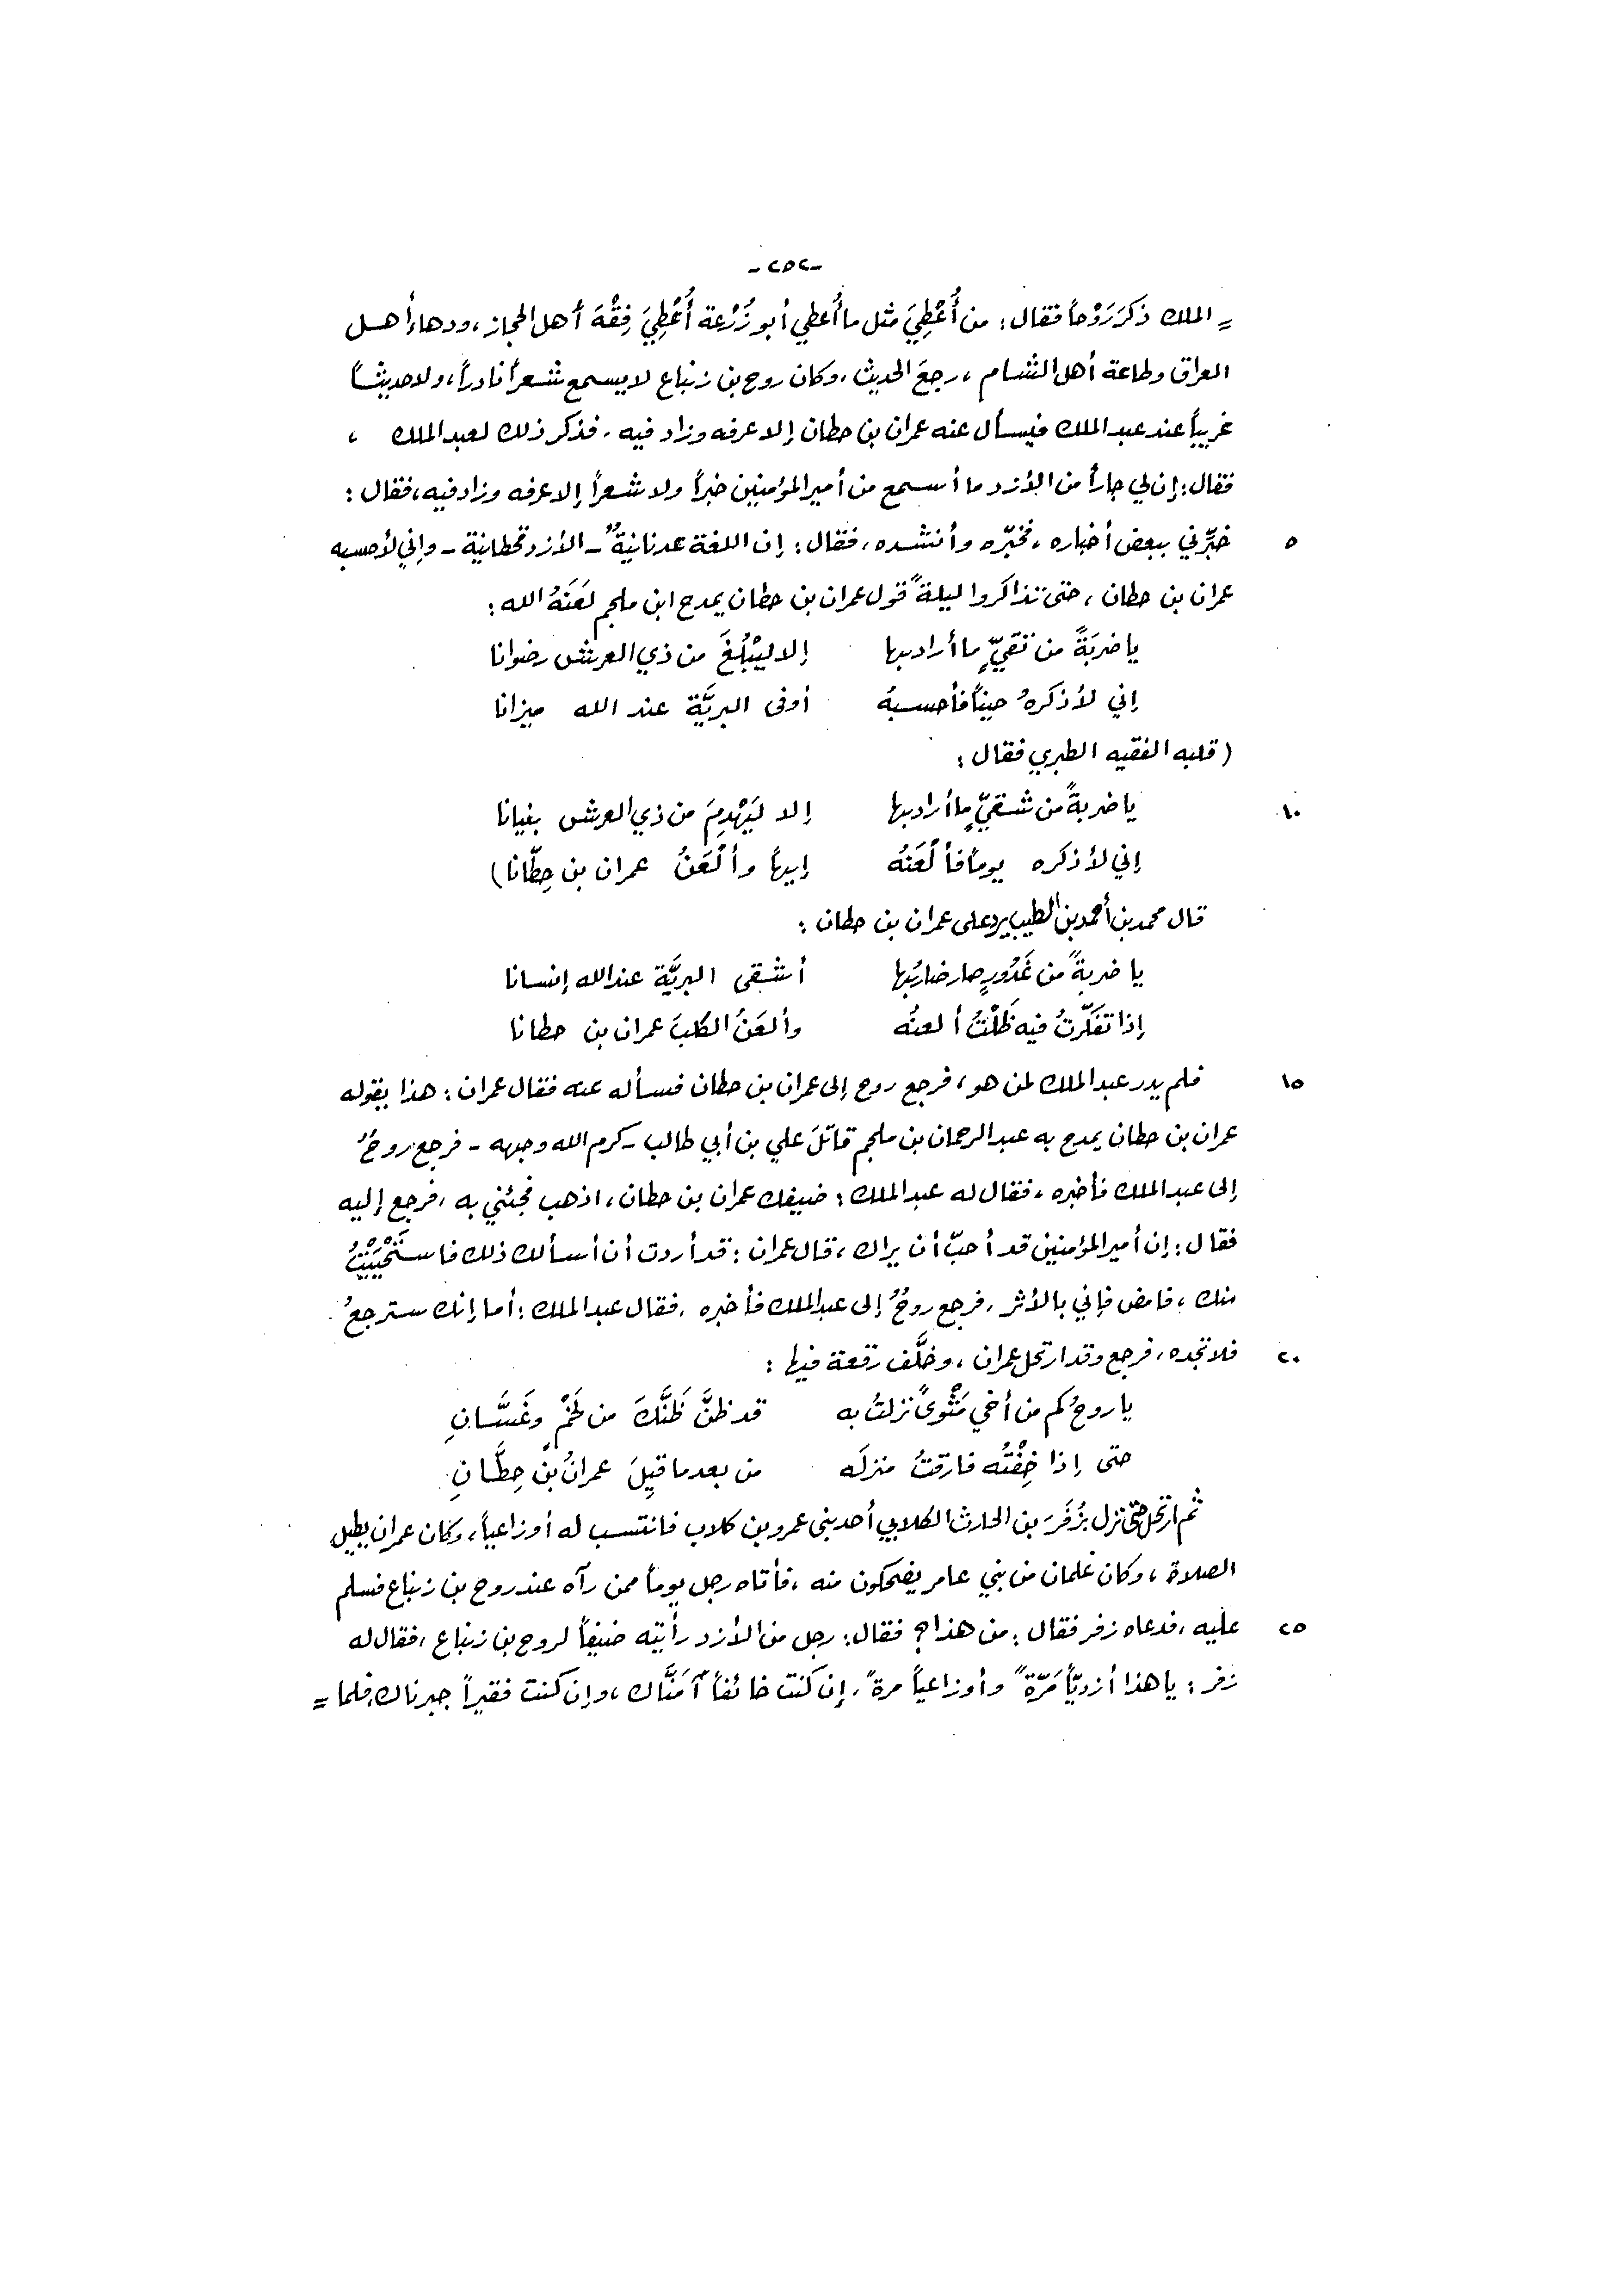 -٢٥٢-
= الملك ذكرَ رَوْحاً فقال: من أُعْطِيَ مثل ما أُعطي أبو زُرْعة أُعْطِيَ فِقْهَ أهل الحجاز، ودهاء أهل
العراق وطاعة أهل الشام، رجعَ الحديث، وكان روح بن زنباع لا يسمع شعراً نادراً، ولا حديثاً
غريباً عند عبد الملك فيسأل عنه عمران بن حطان إلا عرفه وزاد فيه. فذكر ذلك لعبد الملك ،
فقال: إن لي جاراً من الأزد ما أسمع من أمير المؤمنين خبراً ولا شعراً إلا عرفه وزاد فيه، فقال:
٥ خبّرني ببعض أخباره، فخبّره وأنشده، فقال: إن اللغة عدنانيةٌ - الأزد قحطانية - وإني لأحسبه
عمران بن حطان، حتى تذاكروا ليلةً قول عمران بن حطان يمدح ابن ملجم لَعَنَهُ الله:
يا ضربَةً من تقيٍّ ما أراد بها إلا ليَبْلُغَ من ذي العرش رضوانا
إني لأذكرهُ حيناً فأحسبهُ أوفى البريَّة عند الله ميزانا
(قلبه الفقيه الطبري فقال:
١٠ يا ضربةً من شقيٍّ ما أراد بها إلا ليَهْدِمَ من ذي العرش بنيانا
إني لأذكره يوماً فألْعَنُه إيهاً وألْعَنُ عمران بن حِطّانا)
قال محمد بن أحمد بن الطيب يرد على عمران بن حطان:
يا ضربةً من غَدُورٍ صار ضاربُها أشقى البريَّة عند الله إنسانا
إذا تفكّرتُ فيه ظَلْتُ ألعنُه وألعَنُ الكلبَ عمران بن حطانا
١٥ فلم يدر عبد الملك لمن هو، فرجع روح إلى عمران بن حطان فسأله عنه فقال عمران: هذا يقوله
عمران بن حطان يمدح به عبد الرحمان بن ملجم قاتلَ علي بن أبي طالب - كرم الله وجهه - فرجع روحٌ
إلى عبد الملك فأخبره، فقال له عبد الملك: ضيفك عمران بن حطان، اذهب فجئني به، فرجع إليه
فقال: إن أمير المؤمنين قد أحبّ أن يراك، قال عمران: قد أردت أن أسألك ذلك فاستَحْيَيْتُ
منك، فامض فإني بالأثر، فرجع روحٌ إلى عبد الملك فأخبره، فقال عبد الملك: أما إنك سترجعُ
٢٠ فلا تجده، فرجع وقد ارتحل عمران، وخلَّف رقعة فيها:
يا روحُ كم من أخي مَثْوىً نزلتُ به قد ظنَّ ظَنَّكَ من لَخْمٍ وغَسَّانِ
حتى إذا خِفْتُه فارقتُ منزلَه من بعد ما قيِلَ عمرانُ بنُ حِطَّانِ
ثم ارتحل حتى نزل بزُفَرَ بن الحارث الكلابي أحد بني عمرو بن كلاب فانتسب له أوزاعياً، وكان عمران يطيل
الصلاة، وكان غلمان من بني عامر يضحكون منه، فأتاه رجل يوماً ممن رآه عند روح بن زنباع فسلم
٢٥ عليه، فدعاه زفر فقال: من هذا؟ فقال: رجل من الأزد رأيته ضيفاً لروح بن زنباع، فقال له
زفر: يا هذا أزديّاً مَرّةً وأوزاعياً مرةً، إن كنت خائفاً آمَنَّاك، وإن كنت فقيراً جبرناك، فلما =